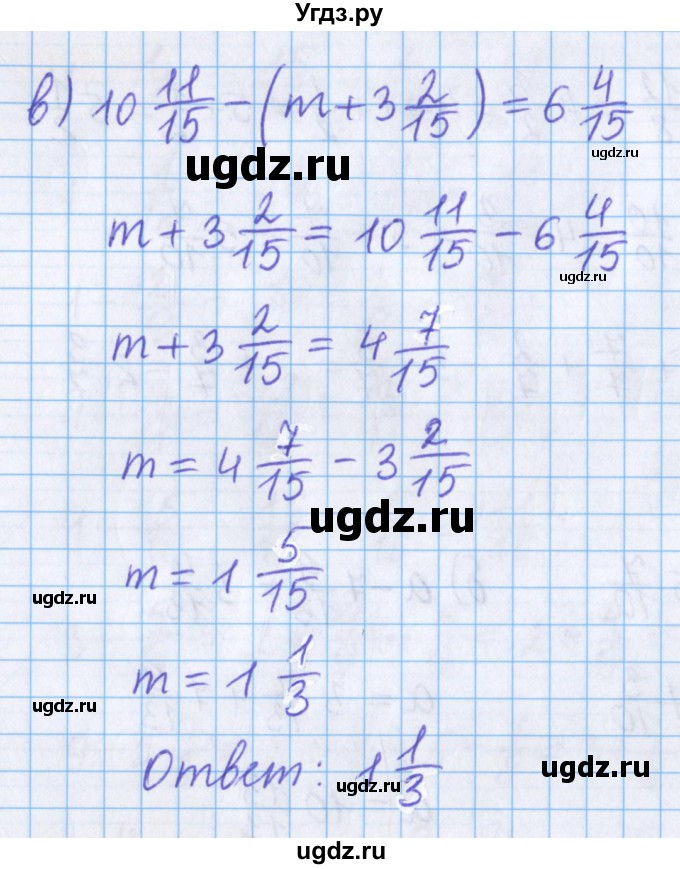 Угдз.ру
в) 10 11/15 − (m + 3 2/15) = 6 4/15
ugdz.ru
ugdz.ru
m + 3 2/15 = 10 11/15 − 6 4/15
ugdz.ru
m + 3 2/15 = 4 7/15
m = 4 7/15 − 3 2/15
ugdz.ru
m = 1 5/15
ugdz.ru
m = 1 1/3
ugdz.ru
Ответ: 1 1/3
ugdz.ru
ugdz.ru
ugdz.ru